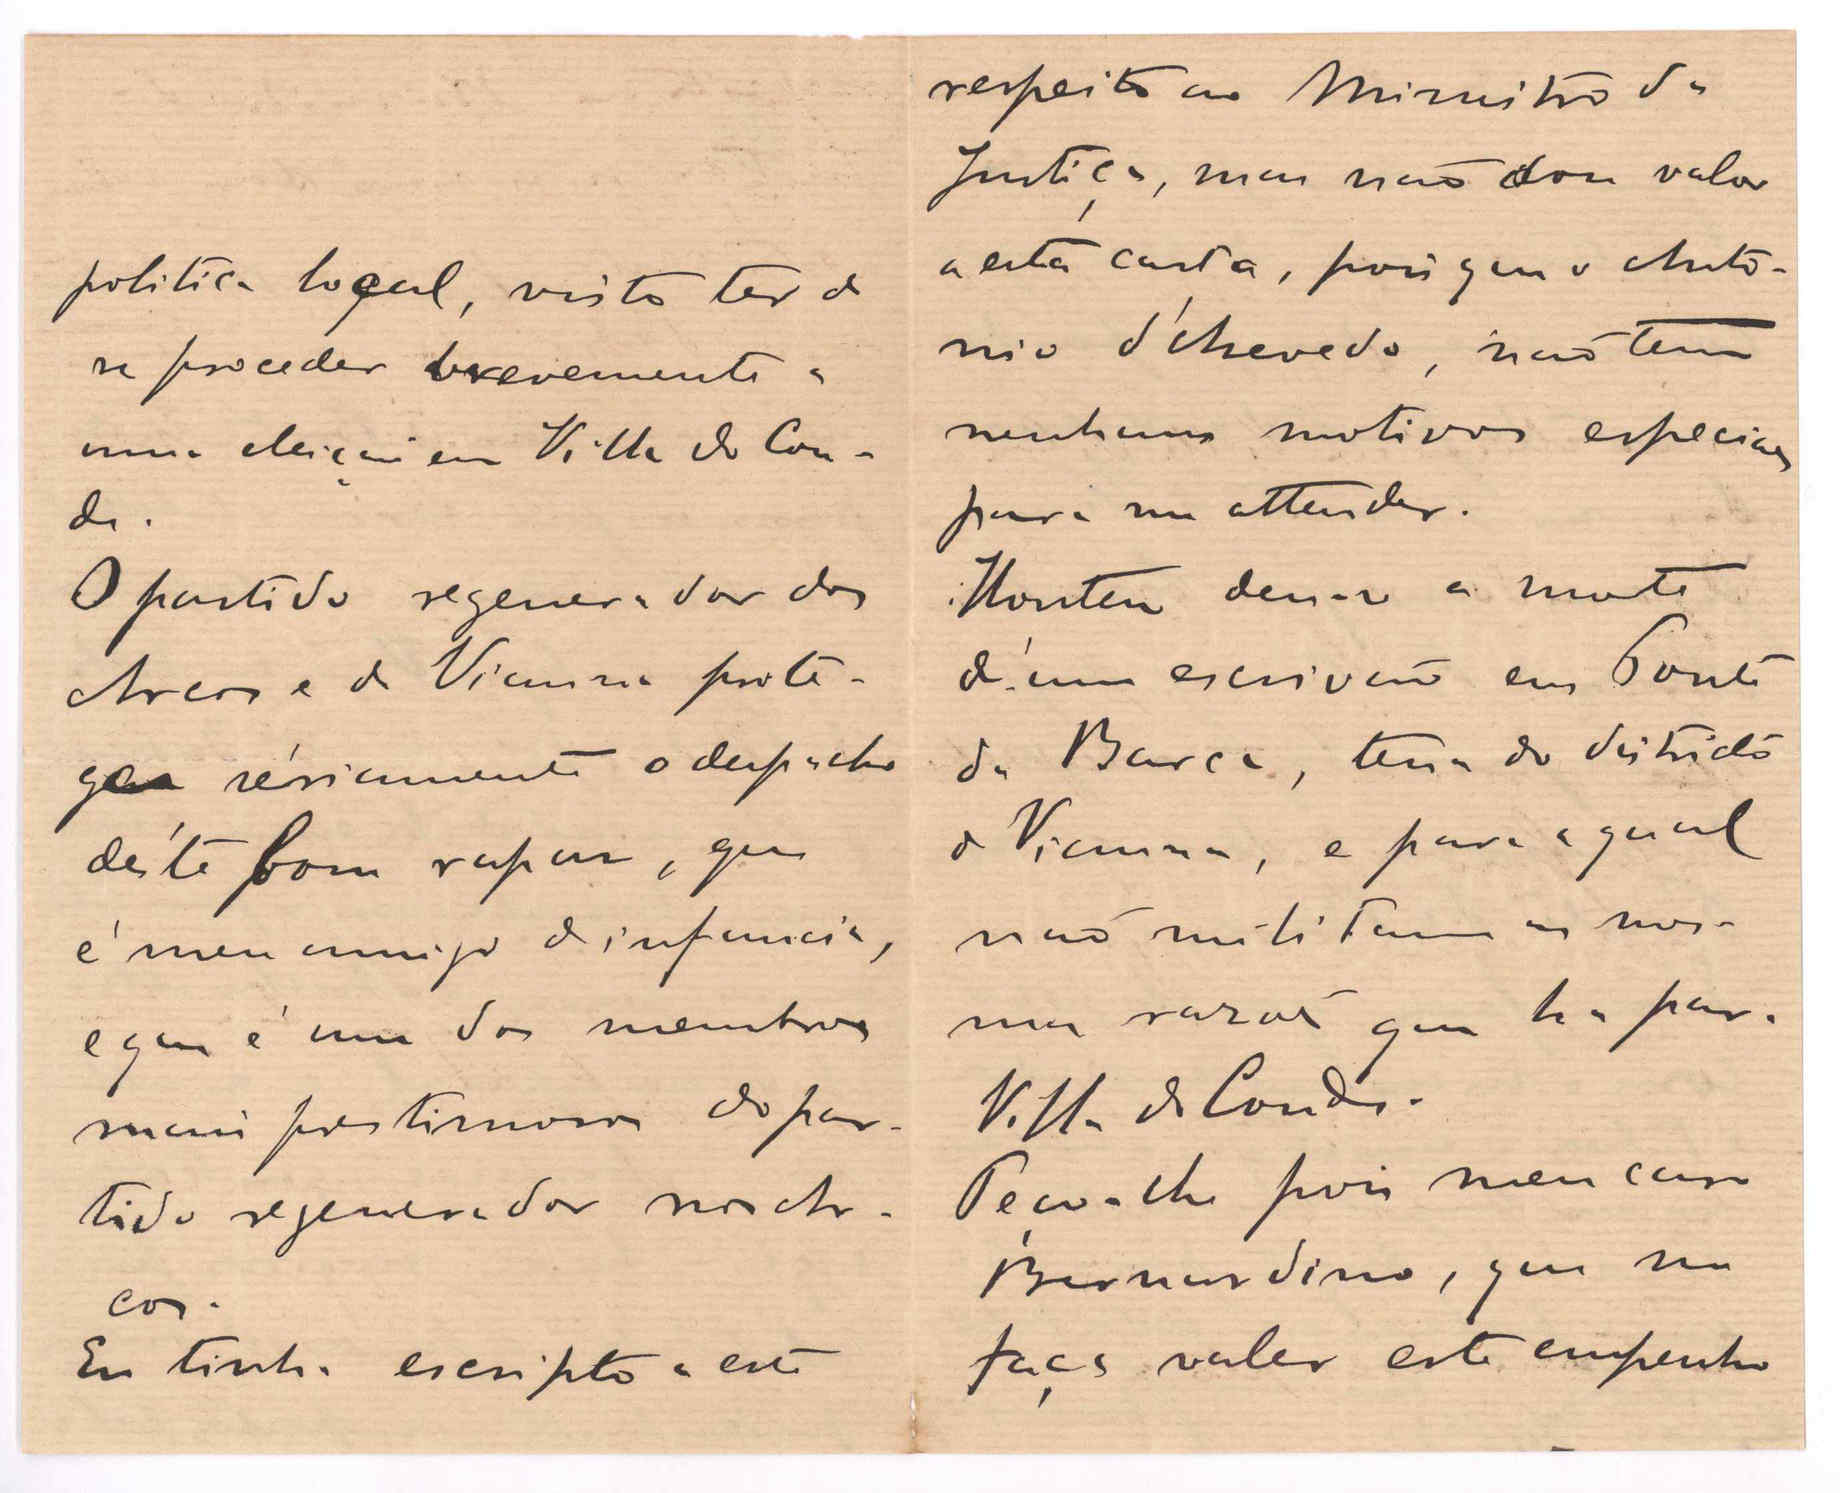 politica local, visto ter de
se proceder brevemente a
uma eleição em Villa do Con-
de.
O partido regenerador dos
Arcos e de Vianna prote-
gem sériamente o despacho
déste bom rapaz, que
é meu amigo de infancia,
e que é um dos membros
mais prestimosos do par-
tido regenerador nos Ar-
cos.
Eu tinha escripto a este
respeito ao Ministro da
Justiça, mas não dou valor
a esta carta, pois que o Anto-
nio d'Azevedo, não tem
nenhuns motivos especiaes
para me attender.
Hontem deu-se a morte
d'um escrivão em Ponte
da Barca, terra do districto
de Vianna, e para a qual
não militam as mes-
mas razões que ha para
Villa do Conde.
Peço-lhe pois meu caro
Bernardino, que me
faça valer este empenho